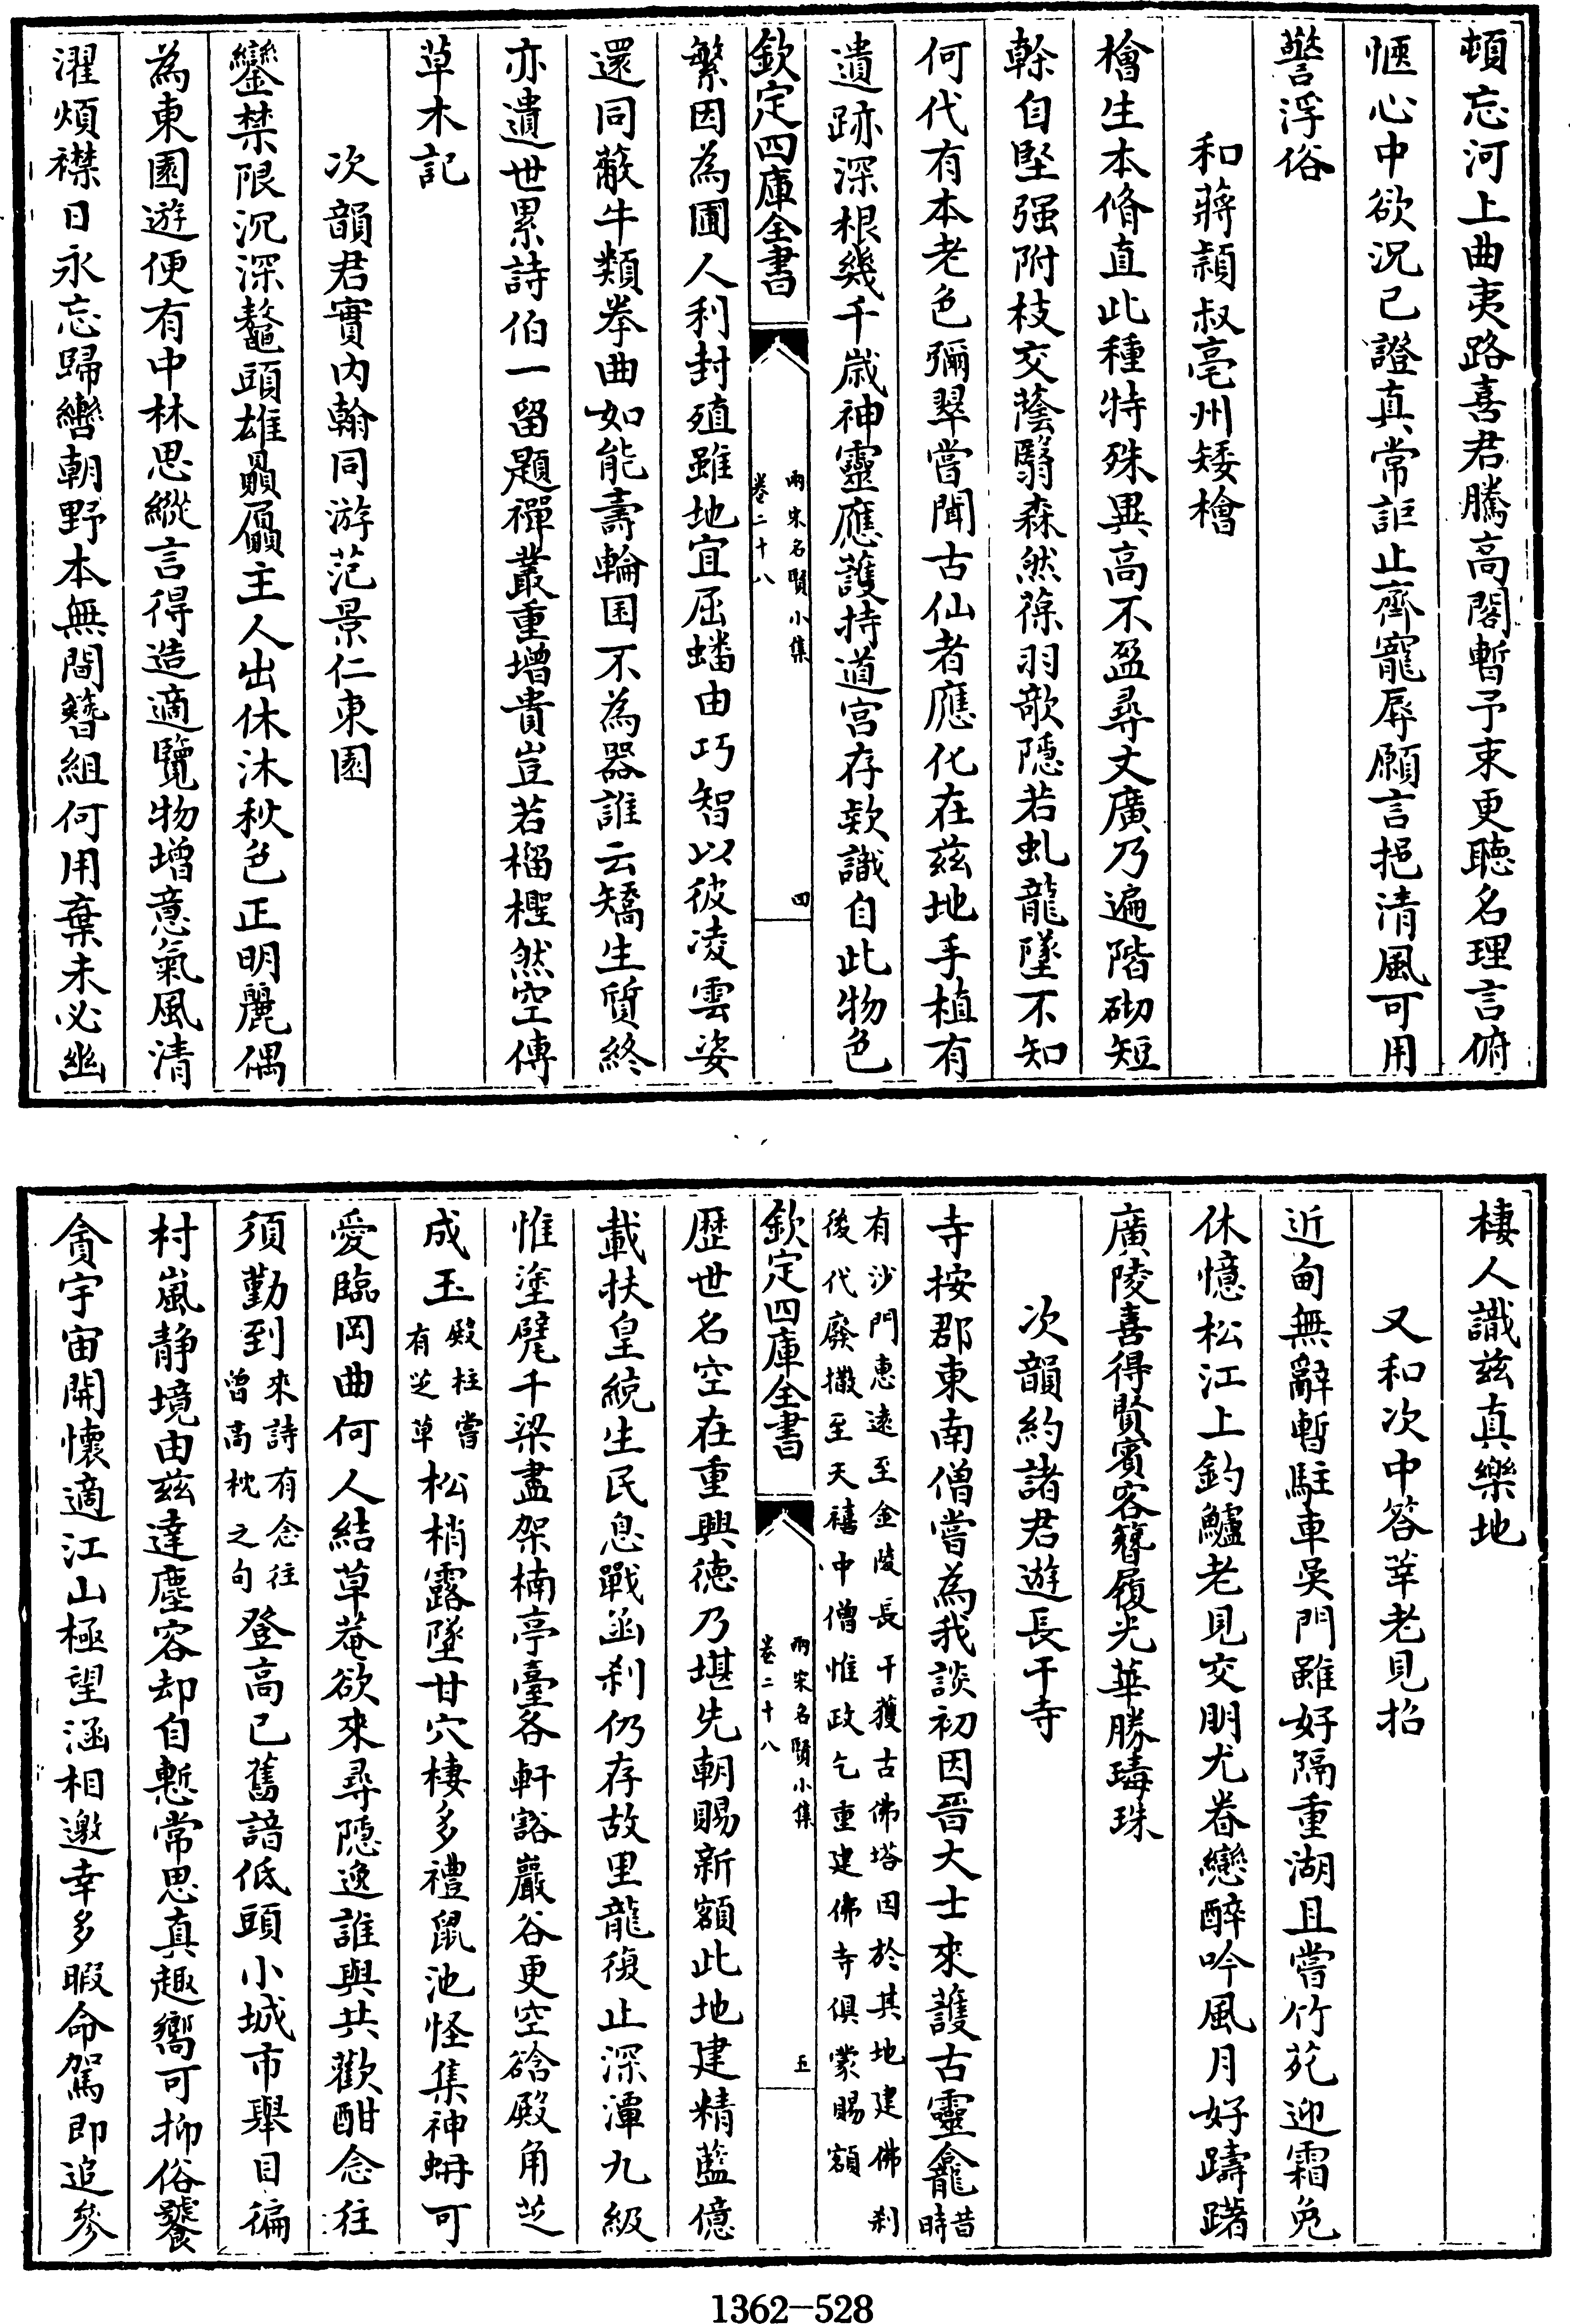 頓忘河上曲夷路喜君騰高閣暫予束更聽名理言俯
愜心中欲況已證真常詎止齊寵辱願言挹清風可用
警浮俗
和蔣穎叔亳州矮檜
檜生本脩直此種特殊異高不盈尋丈廣乃遍階砌短
榦自堅强附枝交蔭翳森然葆羽欹隠若虬龍墜不知
何代有本老色彌翠嘗聞古仙者應化在兹地手植有
遺跡深根幾千嵗神靈應護持道宫存欵識自此物色
欽定四庫全書
兩宋名賢小集
卷二十八
四
繁因為圃人利封殖雖地宜屈蟠由巧智以彼凌雲姿
還同蔽牛類拳曲如能壽輪囷不為器誰云矯生質終
亦遺世累詩伯一留題禪叢重增貴豈若榴檉然空傳
草木記
次韻君實内翰同游范景仁東園
鑾禁限沉深鼇頭雄贔屭主人出休沐秋色正明麗偶
為東園遊便有中林思縱言得造適覽物增意氣風清
濯煩襟日永忘歸轡朝野本無間簪組何用棄未必幽
棲人識兹真樂地
又和次中答莘老見招
近甸無辭暫駐車吳門雖好隔重湖且嘗竹苑迎霜兔
休憶松江上釣鱸老見交朋尤眷戀醉吟風月好躊躇
廣陵喜得賢賓客簪履光華勝琲珠
次韻約諸君遊長干寺
寺按郡東南僧嘗為我談初因晉大士來護古靈龕昔時
有沙門惠遠至金陵長干獲古佛塔因於其地建佛刹
後代廢撤至天禧中僧惟政乞重建佛寺俱蒙賜額
欽定四庫全書
兩宋名賢小集
卷二十八
五
歴世名空在重興徳乃堪先朝賜新額此地建精藍億
載扶皇統生民息戰函刹仍存故里龍復止深潭九級
惟塗甓千梁盡架楠亭臺各軒豁巖谷更空谽殿角芝
成玉殿柱嘗有芝草松梢露墜甘穴棲多禮鼠池怪集神蚺可
愛臨岡曲何人結草菴欲來尋隠逸誰與共歡酣念往
須勤到來詩有念往曾高枕之句登高已舊諳低頭小城市舉目徧
村嵐静境由兹達塵容却自慙常思真趣嚮可抑俗饕
貪宇宙開懷適江山極望涵相邀幸多暇命駕即追參
1362-528